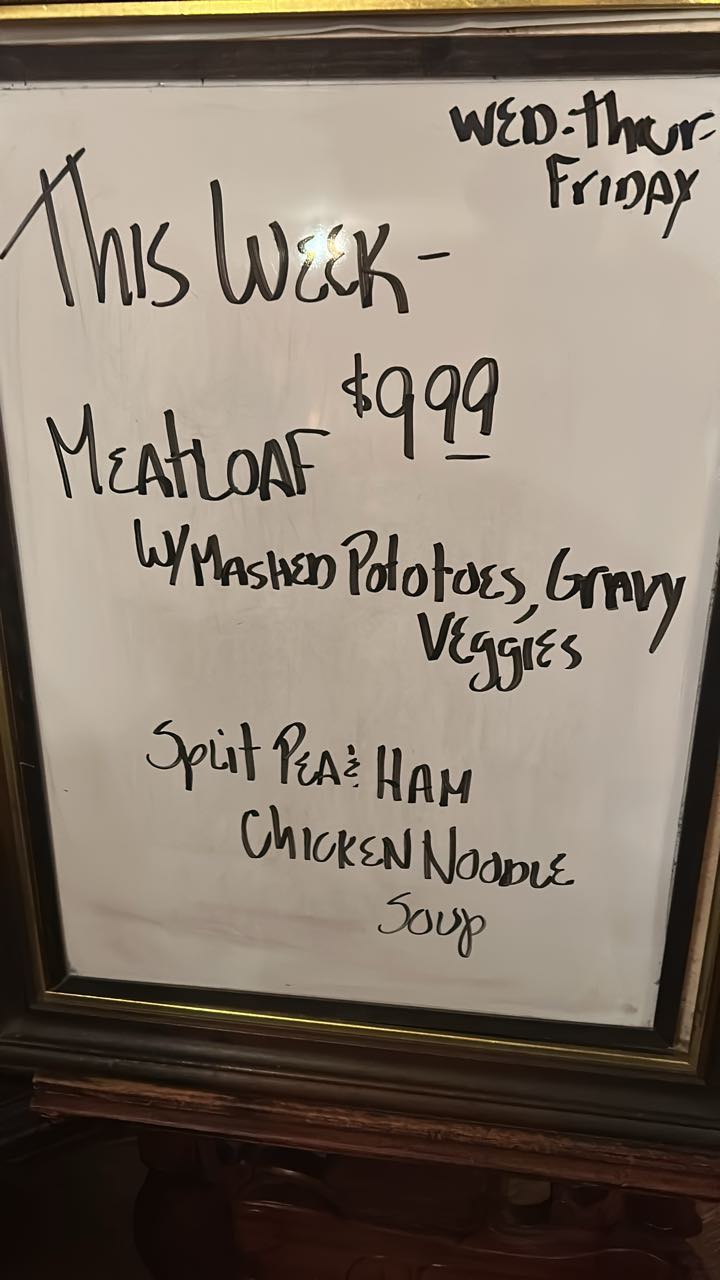 WED-Thur-
FRIDAY
THIS WEEK-
$999
MEATLOAF
W/MASHED POTOTOES, GRAVY
VEGGIES
Split PEA & HAM
CHICKEN NOODLE
Soup